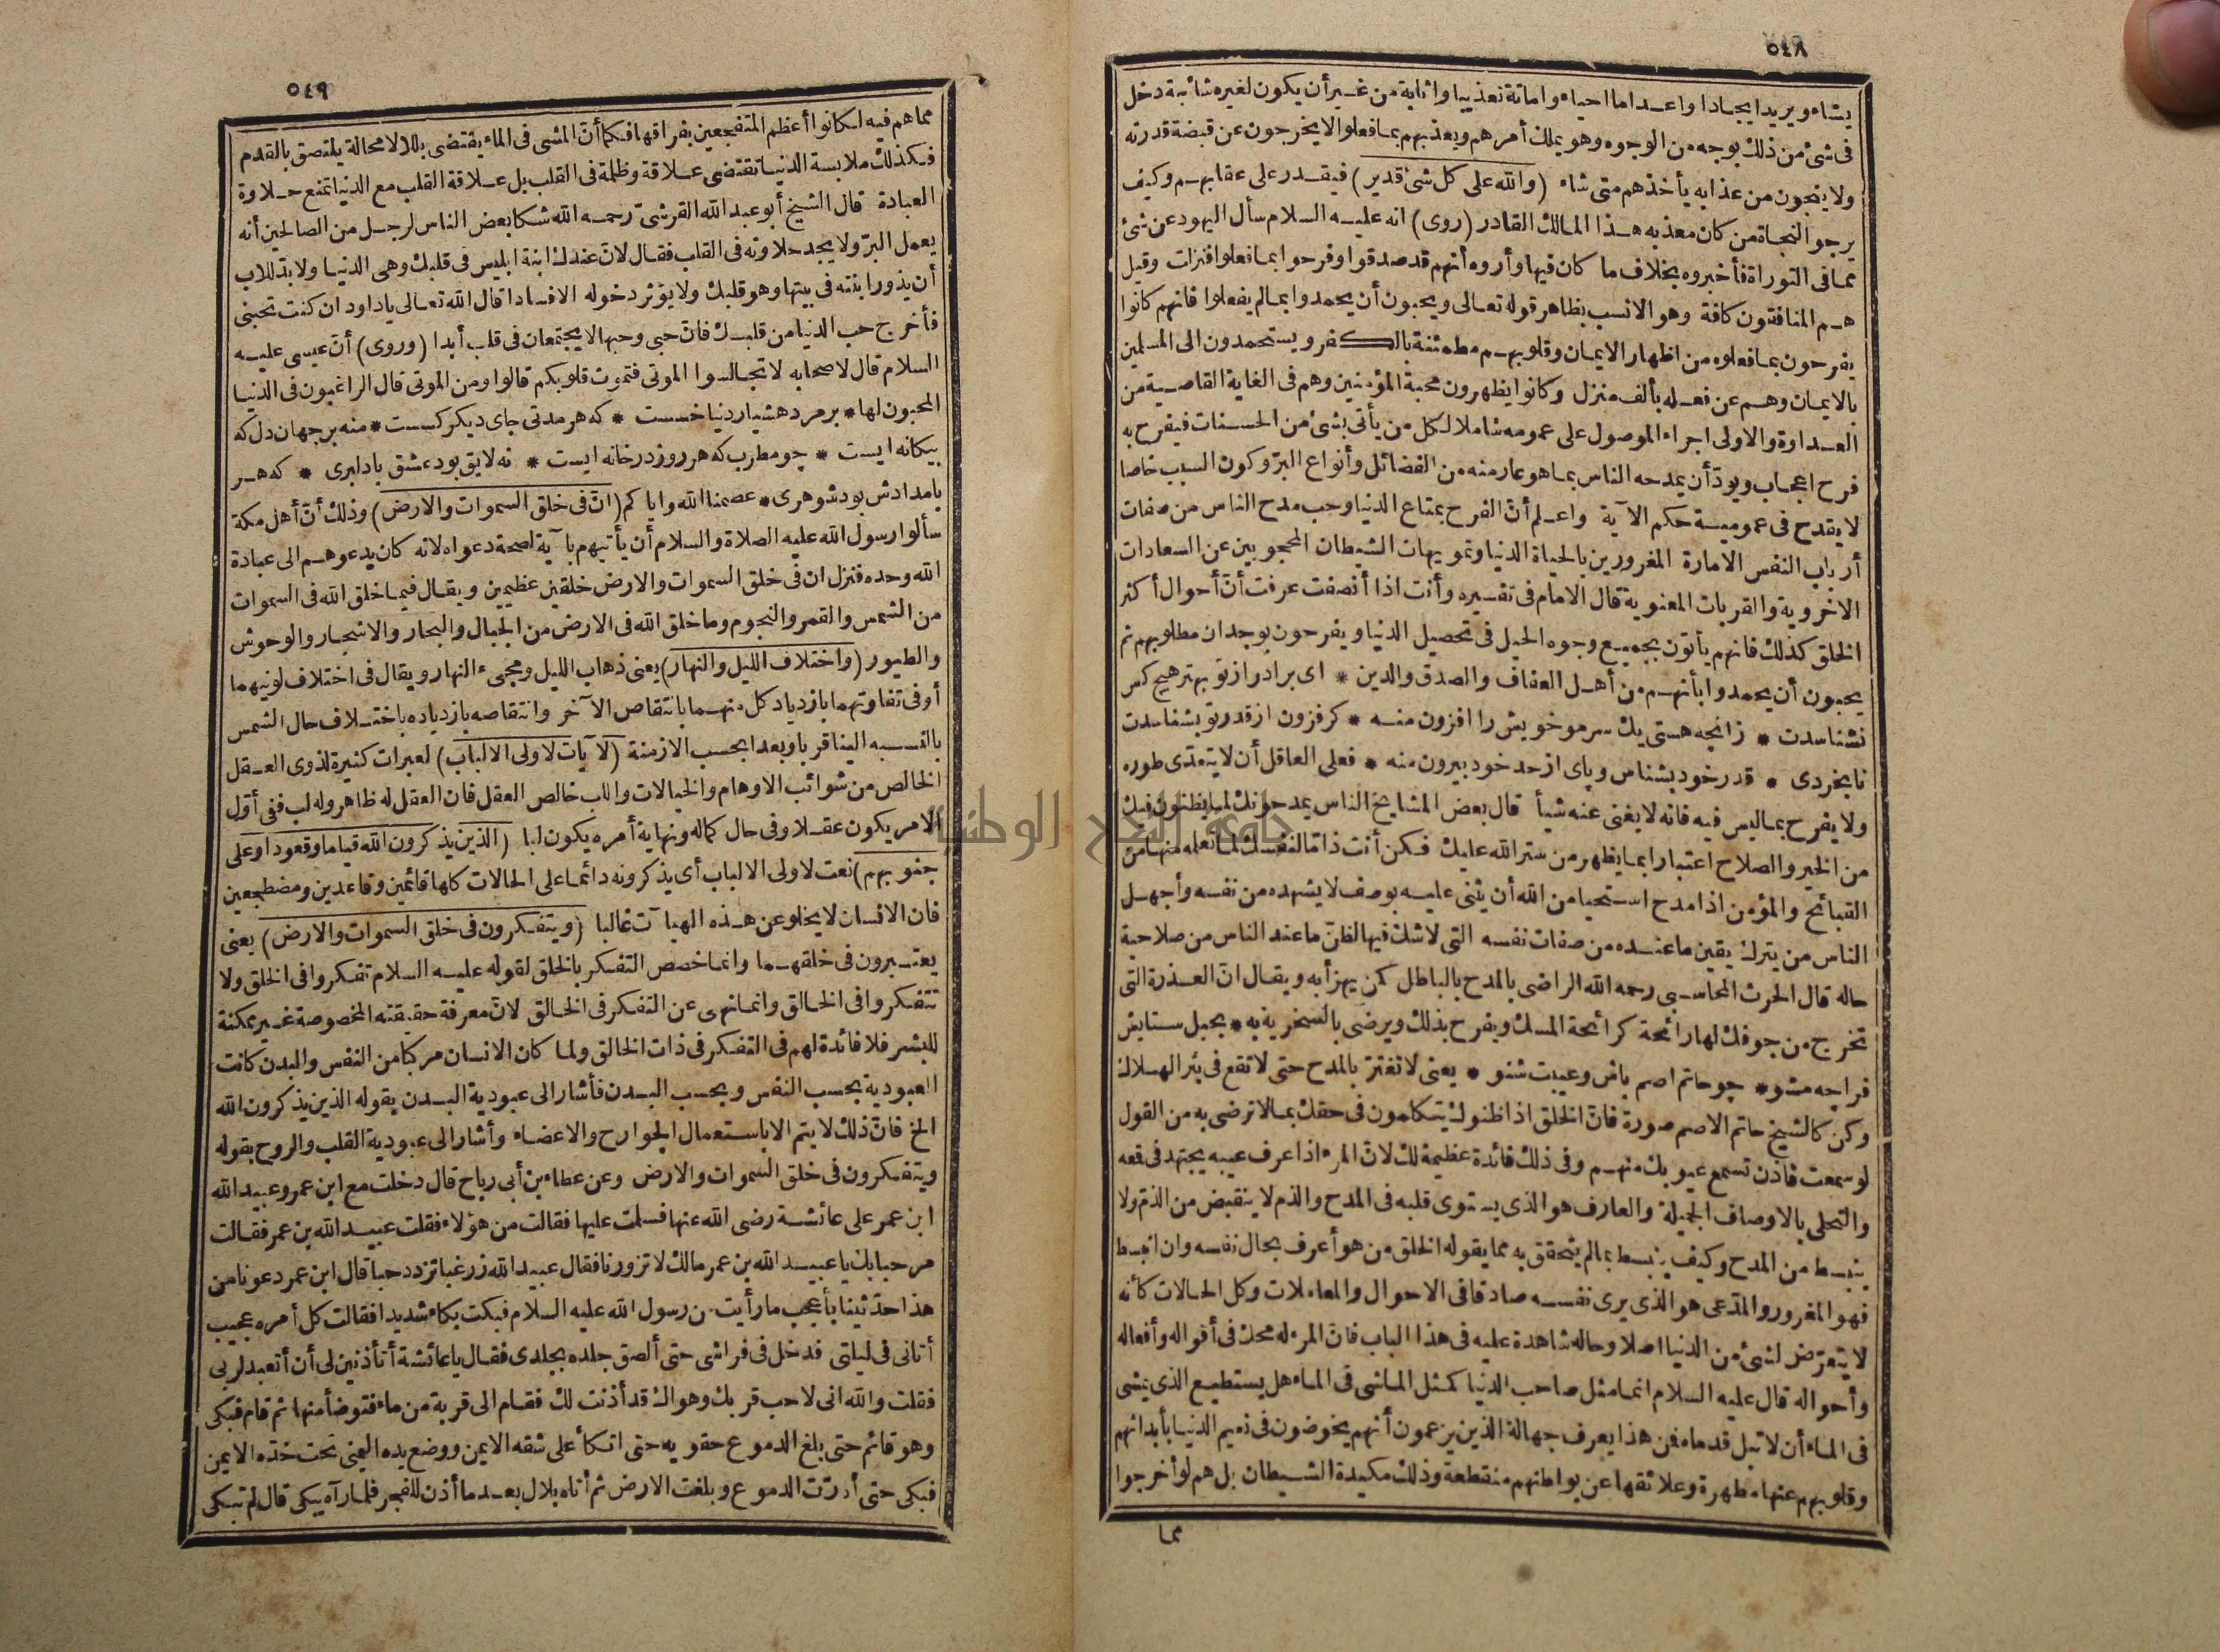 ٥٤٨
يشاء ويريد ايجادا واعداما احياء واماتة تعذيبا واثابة من غير أن يكون لغيره شائبة دخل
فى شئ من ذلك بوجه من الوجوه وهو يملك أمرهم ويعذبهم بما فعلوا لا يخرجون عن قبضة قدرته
ولا ينجون من عذابه يأخذهم متى شاء (والله على كل شئ قدير) فيقدر على عقابهم وكيف
يرجو النجاة من كان معذبه هذا المالك القادر (روى) انه عليه السلام سأل اليهود عن شئ
مما فى التوراة فأخبروه بخلاف ما كان فيها وأروه أنهم قد صدقوا وفرحوا بما فعلوا فنزلت وقيل
هم المنافقون كافة وهو الانسب بظاهر قوله تعالى ويحبون أن يحمدوا بما لم يفعلوا فانهم كانوا
يفرحون بما فعلوه من اظهار الايمان وقلوبهم مطمئنة بالكفر ويستحمدون الى المسلمين
بالايمان وهم عن فعله بألف منزل وكانوا يظهرون محبة المؤمنين وهم فى الغاية القاصية من
العداوة والاولى اجراء الموصول على عمومه شاملا لكل من يأتى بشئ من الحسنات فيفرح به
فرح اعجاب ويودّ أن يمدحه الناس بما هو عار منه من الفضائل وأنواع البرّ وكون السبب خاصا
لا يقدح فى عمومية حكم الآية واعلم أنّ الفرح بمتاع الدنيا وحب مدح الناس من صفات
أرباب النفس الامارة المغرورين بالحياة الدنيا وتمويهات الشيطان المحجوبين عن السعادات
الاخروية والقربات المعنوية قال الامام فى تفسيره وأنت اذا أنصفت عرفت أنّ أحوال أكثر
الخلق كذلك فانهم يأتون بجميع وجوه الحيل فى تحصيل الدنيا ويفرحون بوجدان مطلوبهم ثم
يحبون أن يحمدوا بأنهم من أهل العفاف والصدق والدين * اى برادر از تو بهتر هيچ كس
نشناسدت * زانچه هستى يك سر مو خويش را افزون منه * كر فزون از قدر تو بشناسدت
نابخردى * قدر خود بشناس وپاى از حد خود بيرون منه * فعلى العاقل أن لا يتعدّى طوره
ولا يفرح بما ليس فيه فانه لا يغنى عنه شيأ قال بعض المشايخ الناس يمدحونك لما يظنون فيك
من الخير والصلاح اعتبارا بما يظهر من ستر الله عليك فكن أنت ذامّا لنفسك لما تعلمه منها من
القبائح والمؤمن اذا مدح استحيا من الله أن يثنى عليه بوصف لا يشهده من نفسه وأجهل
الناس من يترك يقين ما عنده من صفات نفسه التى لا شك فيها لظنّ ما عند الناس من صلاحية
حاله قال الحرث المحاسبى رحمه الله الراضى بالمدح بالباطل كمن يهزأ به ويقال انّ العذرة التى
تخرج من جوفك لها رائحة كرائحة المسك ويفرح بذلك ويرضى بالسخرية به * بحبل ستايش
فراچه مشو * چو حاتم اصم باش وعيبت شنو * يعنى لا تغترّ بالمدح حتى لا تقع فى بئر الهلاك
وكن كالشيخ حاتم الاصم صورة فانّ الخلق اذا ظنوك يتكلمون فى حقك بما لا ترضى به من القول
لو سمعت فاذن تسمع عيوبك منهم وفى ذلك فائدة عظيمة لك لانّ المرء اذا عرف عيبه يجتهد فى قمعه
والتحلى بالاوصاف الجميلة والعارف هو الذى يستوى قلبه فى المدح والذم لا ينقبض من الذمّ ولا
ينبسط من المدح وكيف ينبسط بما لم يتحقق به مما يقوله الخلق من هو أعرف بحال نفسه وان انبسط
فهو المغرور والمدّعى هو الذى يرى نفسه صادقا فى الاحوال والمعاملات وكل الحالات كأنه
لا يتعرّض لشئ من الدنيا اصلا وحاله شاهدة عليه فى هذا الباب فانّ المرء له محك فى أقواله وأفعاله
وأحواله قال عليه السلام انما مثل صاحب الدنيا كمثل الماشى فى الماء هل يستطيع الذى يمشى
فى الماء أن لا تبل قدماه فمن هذا يعرف جهالة الذين يزعمون أنهم يخوضون فى نعيم الدنيا بأبدانهم
وقلوبهم عنها مطهرة وعلائقها عن بواطنهم منقطعة وذلك مكيدة الشيطان بل هم لو أخرجوا
مما
٥٤٩
مما هم فيه لكانوا أعظم المتفجعين بفراقها فكما أنّ المشى فى الماء يقتضى بللا لا محالة يلتصق بالقدم
فكذلك ملابسة الدنيا تقتضى علاقة وظلمة فى القلب بل علاقة القلب مع الدنيا تمنع حلاوة
العبادة قال الشيخ أبو عبد الله القرشىّ رحمه الله شكا بعض الناس لرجل من الصالحين أنه
يعمل البرّ ولا يجد حلاوته فى القلب فقال لانّ عندك ابنة ابليس فى قلبك وهى الدنيا ولا بدّ للاب
أن يزور ابنته فى بيتها وهو قلبك ولا يؤثر دخوله الا فسادا قال الله تعالى يا داود ان كنت تحبنى
فأخرج حب الدنيا من قلبك فانّ حبى وحبها لا يجتمعان فى قلب أبدا (وروى) أنّ عيسى عليه
السلام قال لاصحابه لا تجالسوا الموتى فتموت قلوبكم قالوا ومن الموتى قال الراغبون فى الدنيا
المحبون لها * بر مرد هشيار دنيا خسست * كه هر مدتى جاى ديكر كسست * منه بر جهان دل كه
بيكانه ايست * چو مطرب كه هر روز در خانه ايست * نه لايق بود عشق با دلبرى * كه هر
بامدادش بود شوهرى * عصمنا الله واياكم (انّ فى خلق السموات والارض) وذلك أنّ أهل مكة
سألوا رسول الله عليه الصلاة والسلام أن يأتيهم بآية لصحة دعواه لانه كان يدعوهم الى عبادة
الله وحده فنزل ان فى خلق السموات والارض خلقين عظيمين ويقال فيما خلق الله فى السموات
من الشمس والقمر والنجوم وما خلق الله فى الارض من الجبال والبحار والاشجار والوحوش
والطيور (واختلاف الليل والنهار) يعنى ذهاب الليل ومجىء النهار ويقال فى اختلاف لونيهما
أو فى تفاوتهما بازدياد كل منهما بانتقاص الآخر وانتقاصه بازدياده باختلاف حال الشمس
بالنسبه الينا قربا وبعدا بحسب الازمنة (لآيات لاولى الالباب) لعبرات كثيرة لذوى العقل
الخالص من شوائب الاوهام والخيالات واللب خالص العقل فان العقل له ظاهر وله لب ففى أوّل
الامر يكون عقلا وفى حال كماله ونهاية أمره يكون لبا (الذين يذكرون الله قياما وقعودا وعلى
جنوبهم) نعت لاولى الالباب أى يذكرونه دائما على الحالات كلها قائمين وقاعدين ومضطجعين
فان الانسان لا يخلو عن هذه الهيآت غالبا (ويتفكرون فى خلق السموات والارض) يعنى
يعتبرون فى خلقهما وانما خصص التفكر بالخلق لقوله عليه السلام تفكروا فى الخلق ولا
تتفكروا فى الخالق وانما نهى عن التفكر فى الخالق لانّ معرفة حقيقته المخصوصة غير ممكنة
للبشر فلا فائدة لهم فى التفكر فى ذات الخالق ولما كان الانسان مركبا من النفس والبدن كانت
العبودية بحسب النفس وبحسب البدن فأشار الى عبودية البدن بقوله الذين يذكرون الله
الخ فانّ ذلك لا يتم الا باستعمال الجوارح والاعضاء وأشار الى عبودية القلب والروح بقوله
ويتفكرون فى خلق السموات والارض وعن عطاء بن أبى رباح قال دخلت مع ابن عمر وعبيد الله
ابن عمر على عائشة رضى الله عنها فسلمت عليها فقالت من هؤلاء فقلت عبيد الله بن عمر فقالت
مرحبا بك يا عبيد الله بن عمر مالك لا تزورنا فقال عبيد الله زر غبا تزدد حبا قال ابن عمر دعونا من
هذا حدّثينا بأعجب ما رأيت من رسول الله عليه السلام فبكت بكاء شديدا فقالت كل أمره عجيب
أتانى فى ليلتى فدخل فى فراشى حتى ألصق جلده بجلدى فقال يا عائشة أتأذنين لى أن أتعبد لربى
فقلت والله انى لاحب قربك وهواك قد أذنت لك فقام الى قربة من ماء فتوضأ منها ثم قام فبكى
وهو قائم حتى بلغ الدموع حقويه حتى اتكأ على شقه الايمن ووضع يده اليمنى تحت خدّه الايمن
فبكى حتى أدرّت الدموع وبلغت الارض ثم أتاه بلال بعد ما أذن للفجر فلما رآه يبكى قال لم تبكى
جامعة النجاح الوطنية